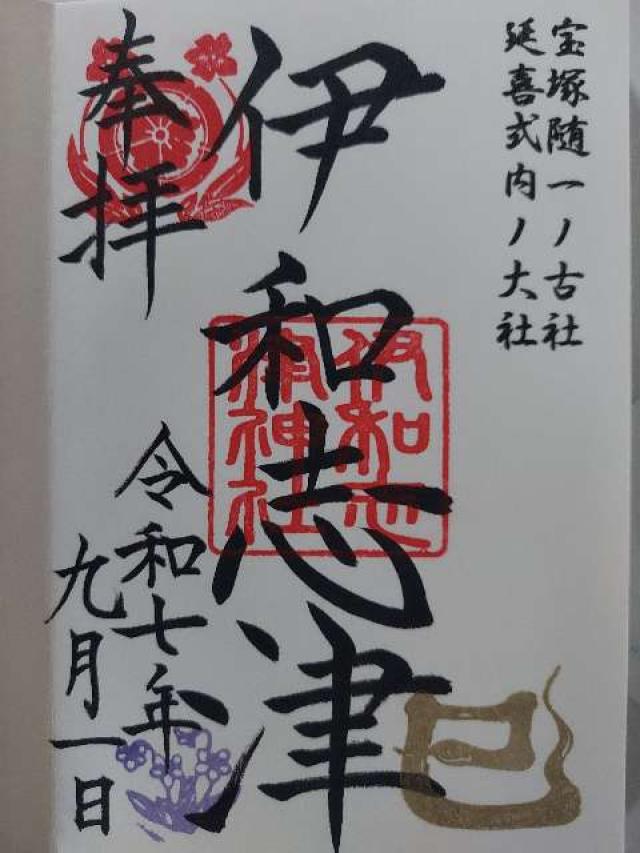 宝塚随一ノ古社
延喜式内ノ大社
伊和志津
伊和志
津神社
奉拝
令和七年
九月一日
巳